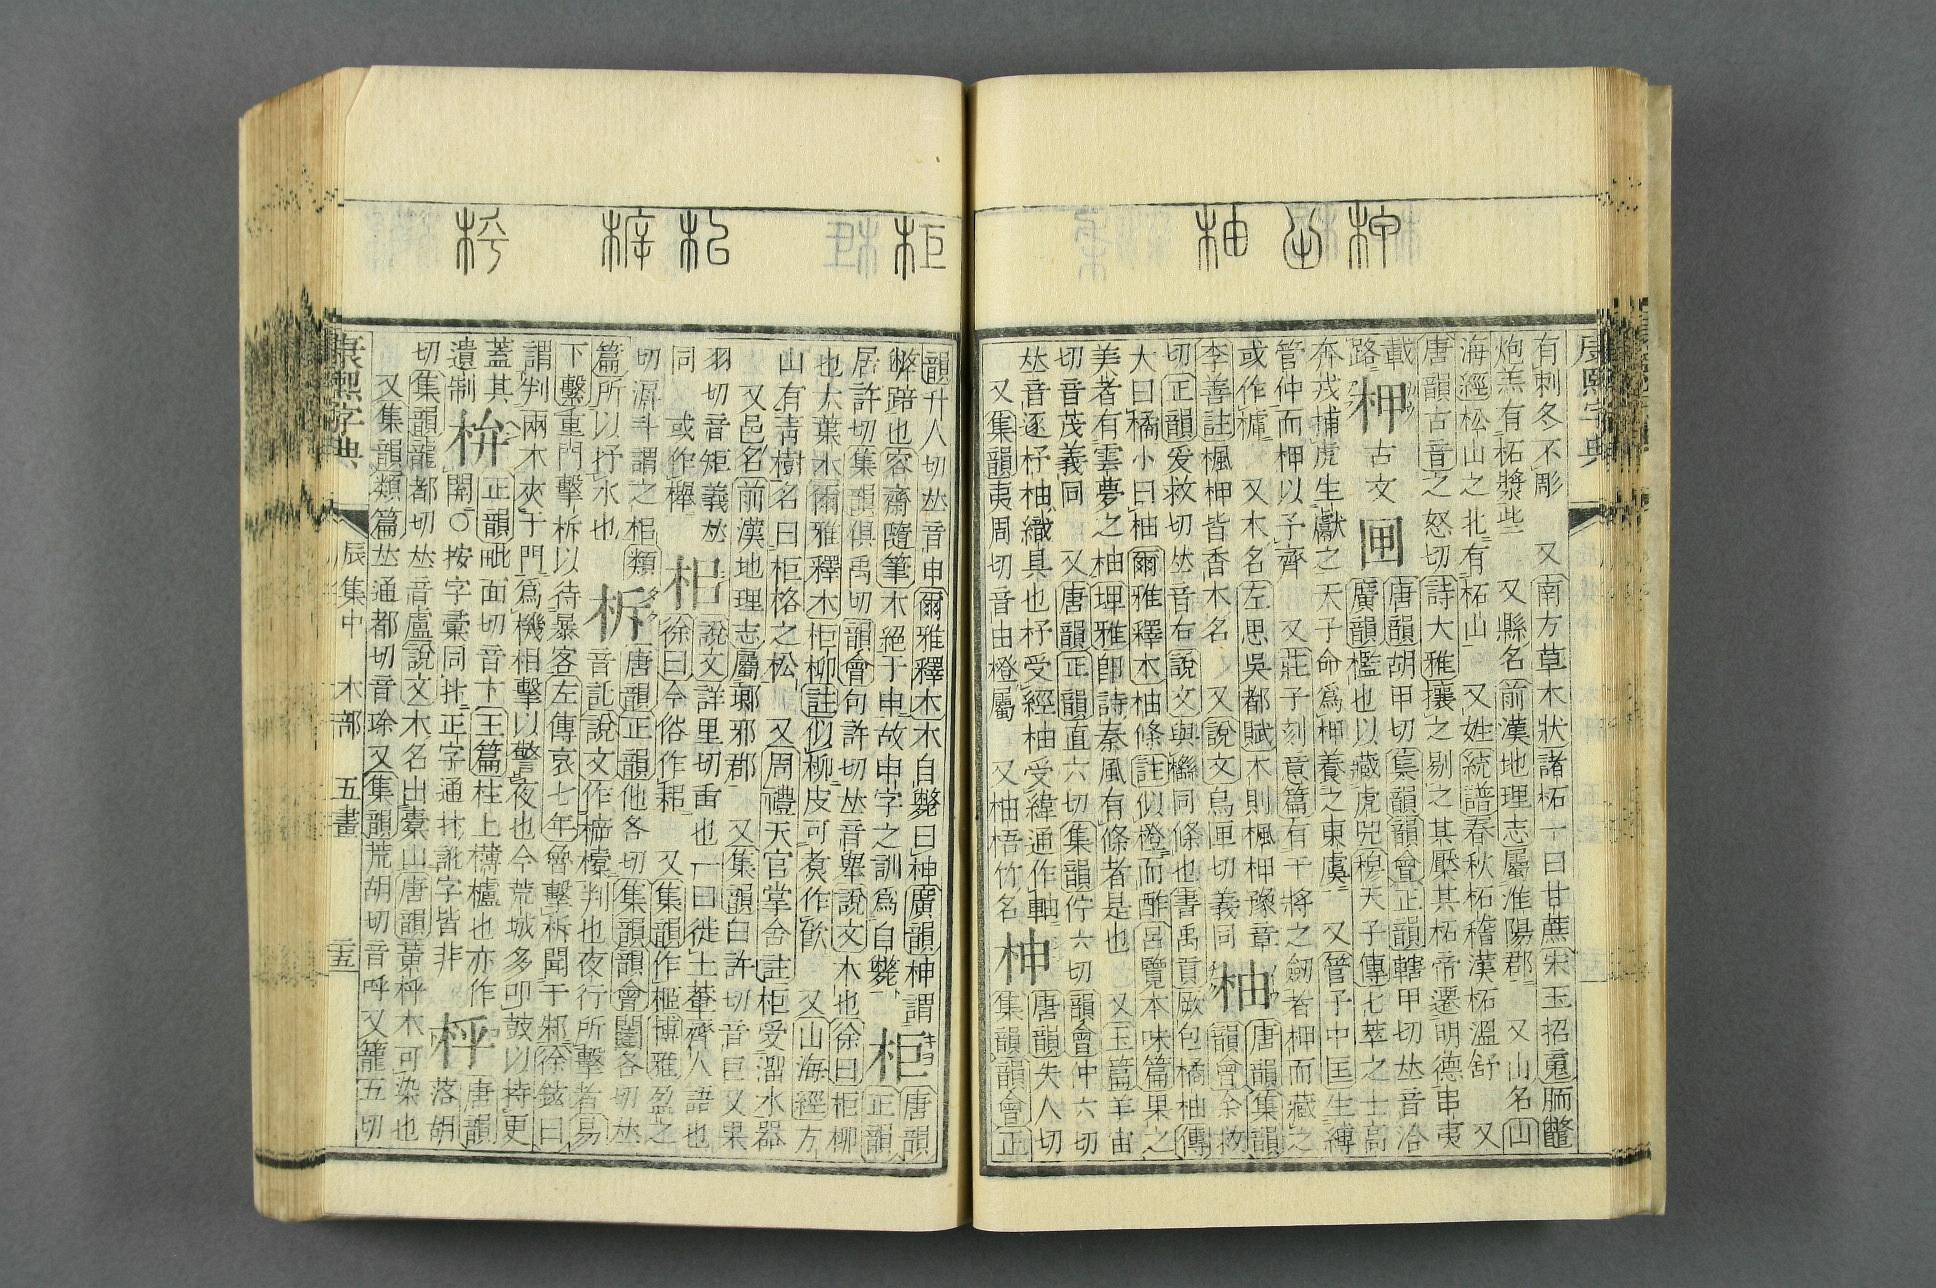 柙 柚
康熙字典
有刺冬不彫 又南方草木狀諸柘一曰甘蔗宋玉招䰟胹鼈
炮羔有柘漿些 又縣名前漢地理志屬淮陽郡 又山名山
海經松山之北有柘山 又姓統譜春秋柘稽漢柘溫舒 又
唐韻古音之怒切詩大雅攘之剔之其檿其柘帝遷明德串夷
載路 柙 古文 𠥾 唐韻胡甲切集韻韻會正韻轄甲切𠀤音洽
廣韻檻也以藏虎兕穆天子傳七萃之士高
奔戎捕虎生獻之天子命爲柙養之東虞 又管子中匡生縛
管仲而柙以予齊 又莊子刻意篇有干將之劒者柙而藏之
或作㯫 又木名左思吳都賦木則楓柙豫章 柚 唐韻集韻
李善註楓柙皆香木名 又說文烏匣切義同 韻會余救
切正韻爰救切𠀤音右說文與櫾同條也書禹貢厥包橘柚傳
大曰橘小曰柚爾雅釋木柚條註似橙而酢呂覽本味篇果之
美者有雲夢之柚埤雅卽詩秦風有條者是也 又玉篇羊宙
切音茂義同 又唐韻正韻直六切集韻佇六切韻會仲六切
𠀤音逐杼柚織具也杼受經柚受緯通作軸 柛 唐韻失人切
又集韻夷周切音由橙屬 又柚梧竹名 集韻韻會正
柜
韻升人切𠀤音申爾雅釋木木自斃曰神廣韻柛謂 柜 唐韻
弊踣也容齋隨筆木絕于申故申字之訓爲自斃 正韻
居許切集韻俱禹切韻會句許切𠀤音舉說文木也徐曰柜柳
也大葉木爾雅釋木柜柳註似柳皮可煑作飮 又山海經方
山有靑樹名曰柜格之松 又周禮天官掌舍註柜受溜水器
又邑名前漢地理志屬瑯邪郡 又集韻臼許切音巨又果
羽切音矩義𠀤同 或作櫸 㭒 說文詳里切臿也一曰徙土輂齊人語也
徐曰今俗作耜 又集韻作 博雅
切 斗謂之棺類篇所以抒水也 柝 唐韻正韻他各切集韻韻會闥各切𠀤
音託說文作㯓 判也夜行所擊者易
下繫重門擊柝以待暴客左傳哀七年魯擊柝聞于邾徐鉉曰
謂判兩木夾于門爲機相擊以警夜也今荒城多叩鼓以持更
蓋其遺制 㭓 正韻毗面切音卞玉篇柱上欂櫨也亦作 㭔 唐韻
開〇按字彙同抃正字通抃訛字皆非 落胡
切集韻龍都切𠀤音盧說文木名出橐山唐韻黃㭔木可染也
又集韻類篇𠀤通都切音㻌又集韻荒胡切音呼又籠五切
康熙字典 辰集中 木部 五畫 三五